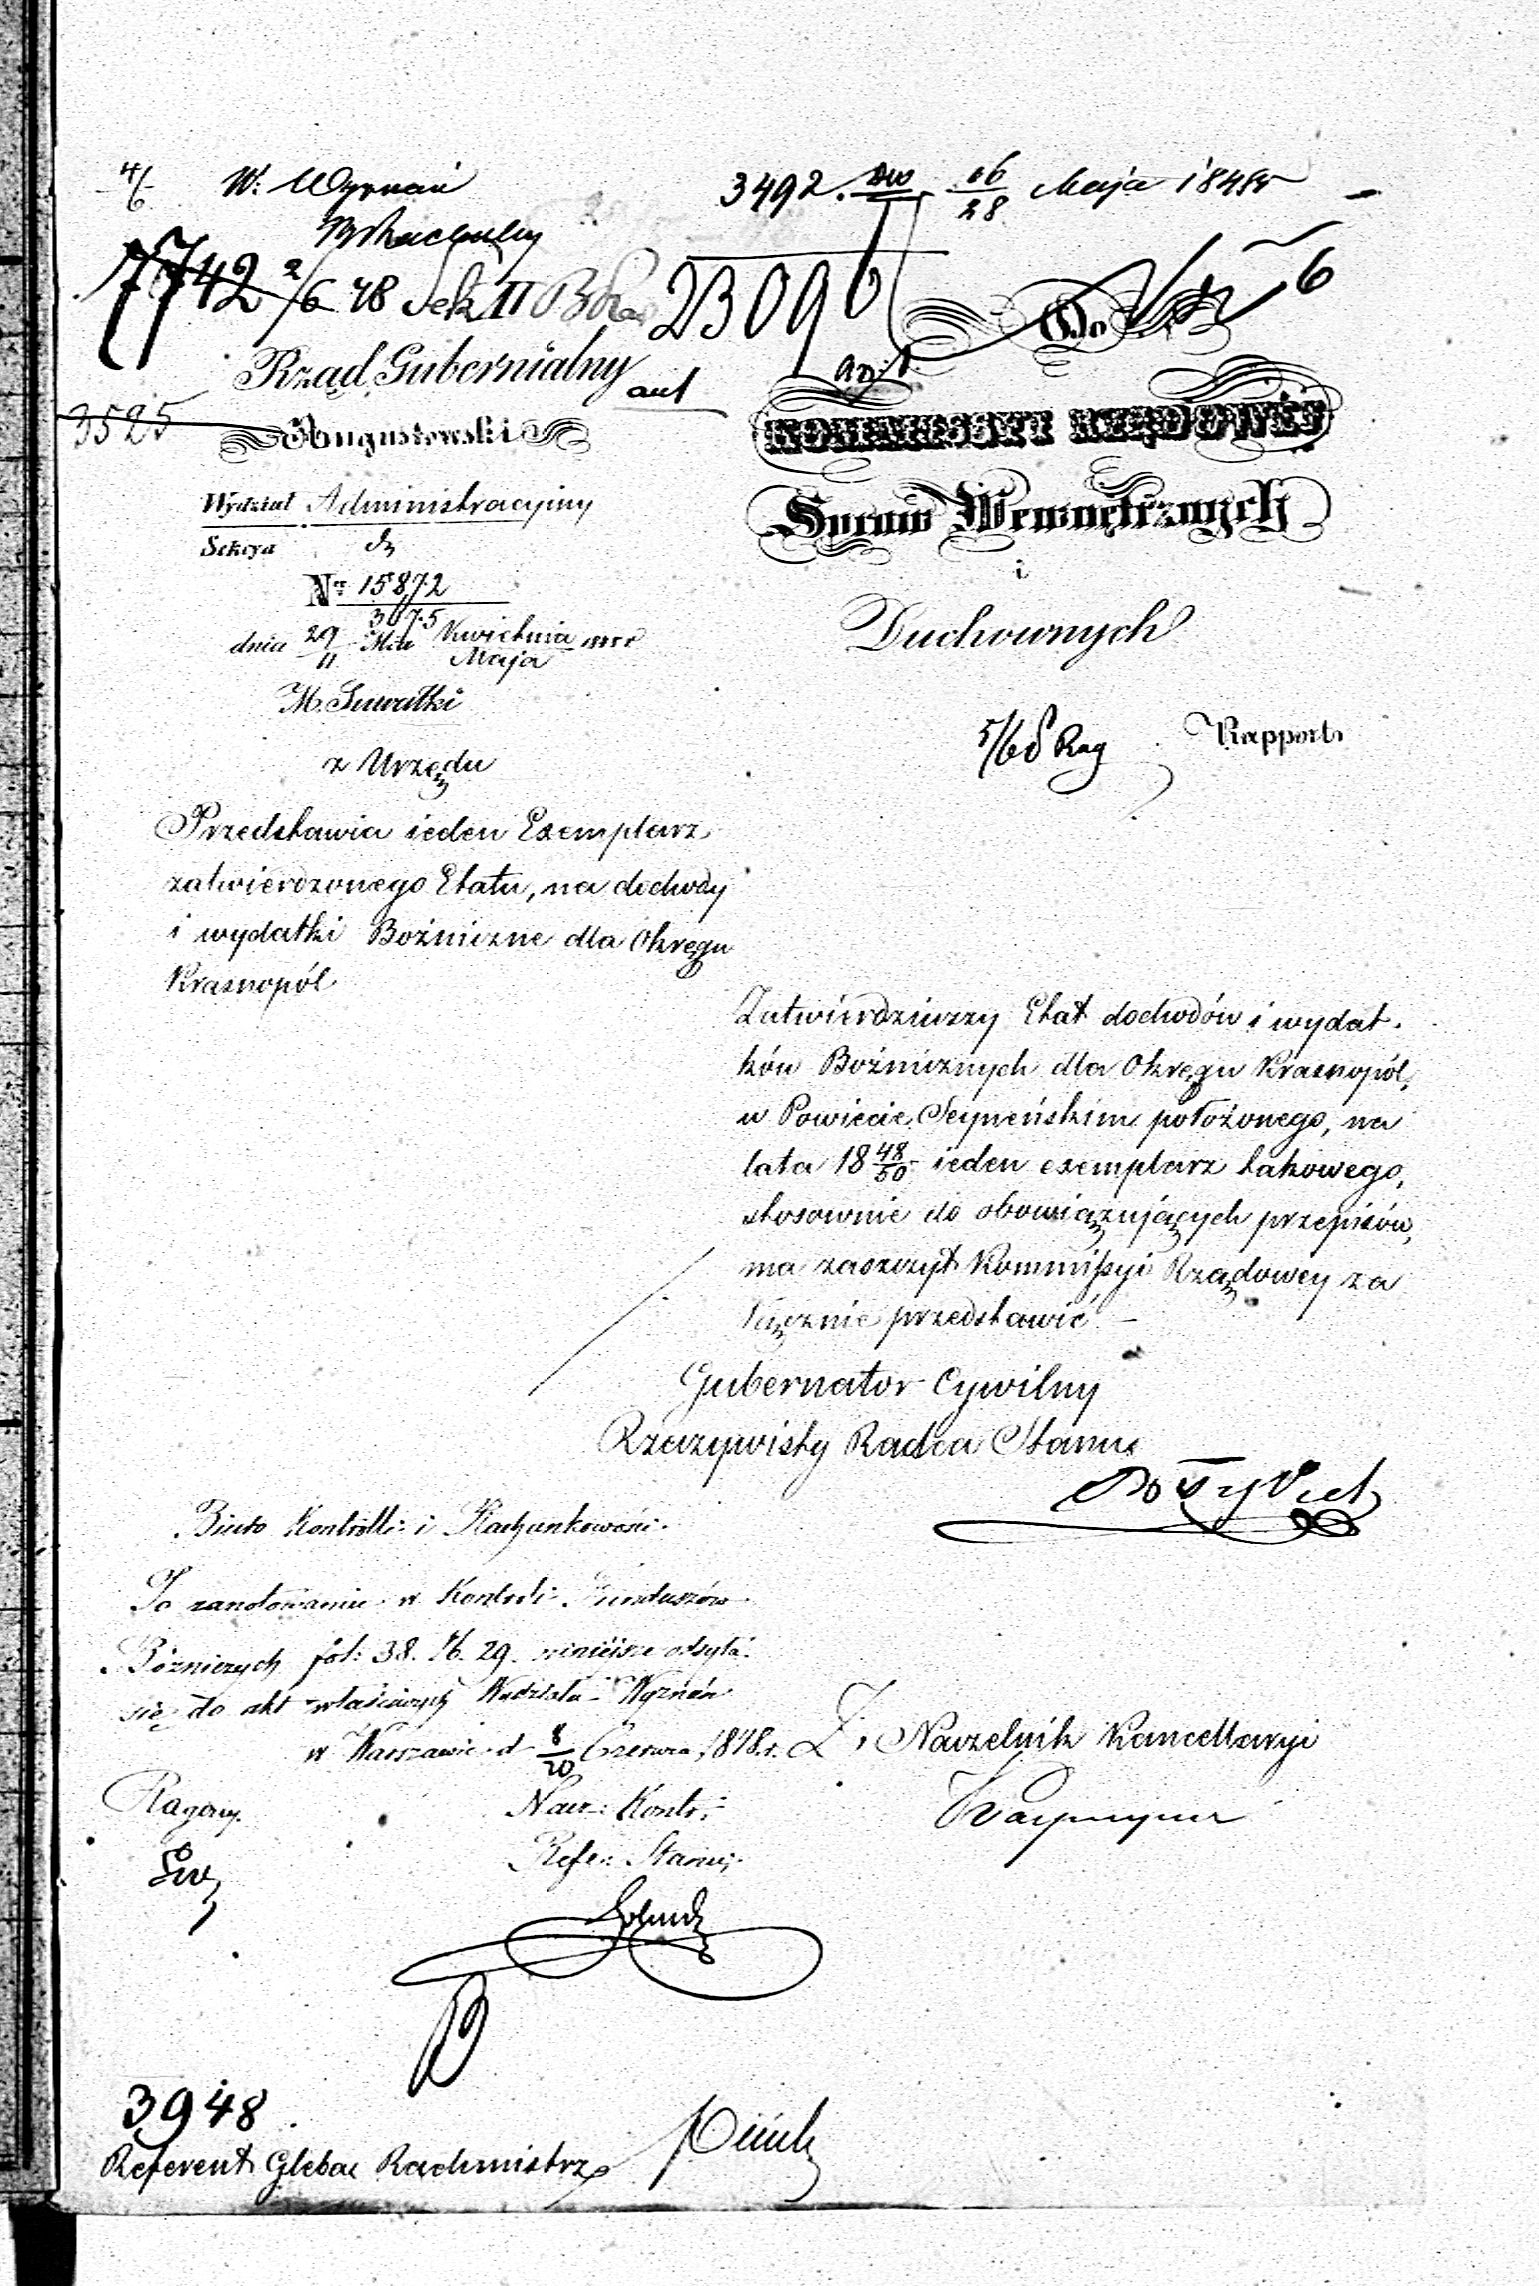 4/6 W. Wyznań
3492. 16/28 Maja 1848 r
7742 2/6 48 Sek II
23096
Rząd Gubernialny
Do
3525
Augustowski
Kommissyi Rządowéj
Wydział Administracyiny
Spraw Wewnętrznych
Sekcya
i
Nr 15872
3075
dnia 29/11 Kwietnia/Maja
Duchownych
M. Suwałki
Rapport
z Urzędu
Przedstawia ieden Exemplarz
zatwierdzonego Etatu, na dochody
i wydatki Bożnicze dla Okręgu
Krasnopól
Zatwierdziwszy Etat dochodów i wydat-
ków Bożniczych dla Okręgu Krasnopól,
w Powiecie Seyneńskim położonego, na
lata 18 48/50 ieden exemplarz takowego,
stosownie do obowiązujących przepisów,
ma zaszczyt Kommissyi Rządowey za
łącznie przedstawić. –
Gubernator Cywilny
Rzeczywisty Radca Stanu
Biuro Kontrolli i Rachunkowości
Po zanotowaniu w Kontroli Funduszów
Bóżniczych fol: 38. N. 29. niniejsze odsyła
się do akt właściwych Wydziału Wyznań
w Warszawie d 8/20 Czerwca 1848 r.
Z. Naczelnik Kancellaryi
Nacz: Kontr:
Refer: Starszy
3948
Referent Glebac Rachmistrz